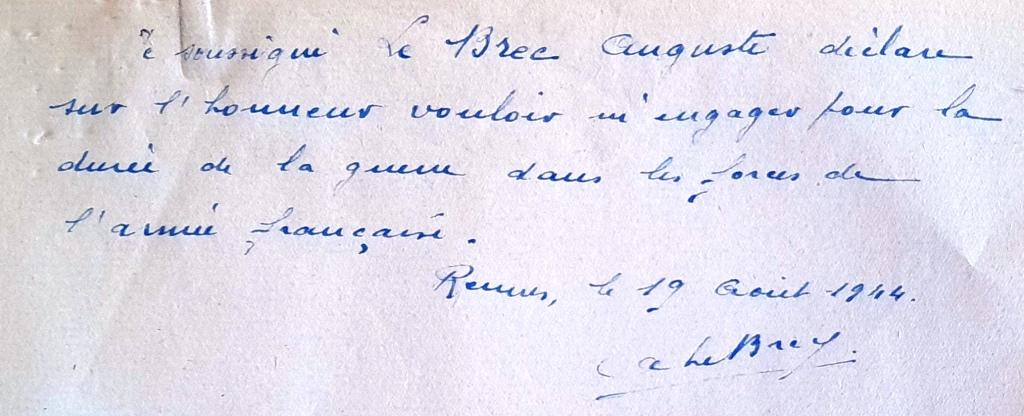 Je soussigné Le Brec Auguste déclare
sur l'honneur vouloir m'engager pour la
durée de la guerre dans les forces de
l'armée française.
Rennes, le 19 Août 1944.
A Le Brec.